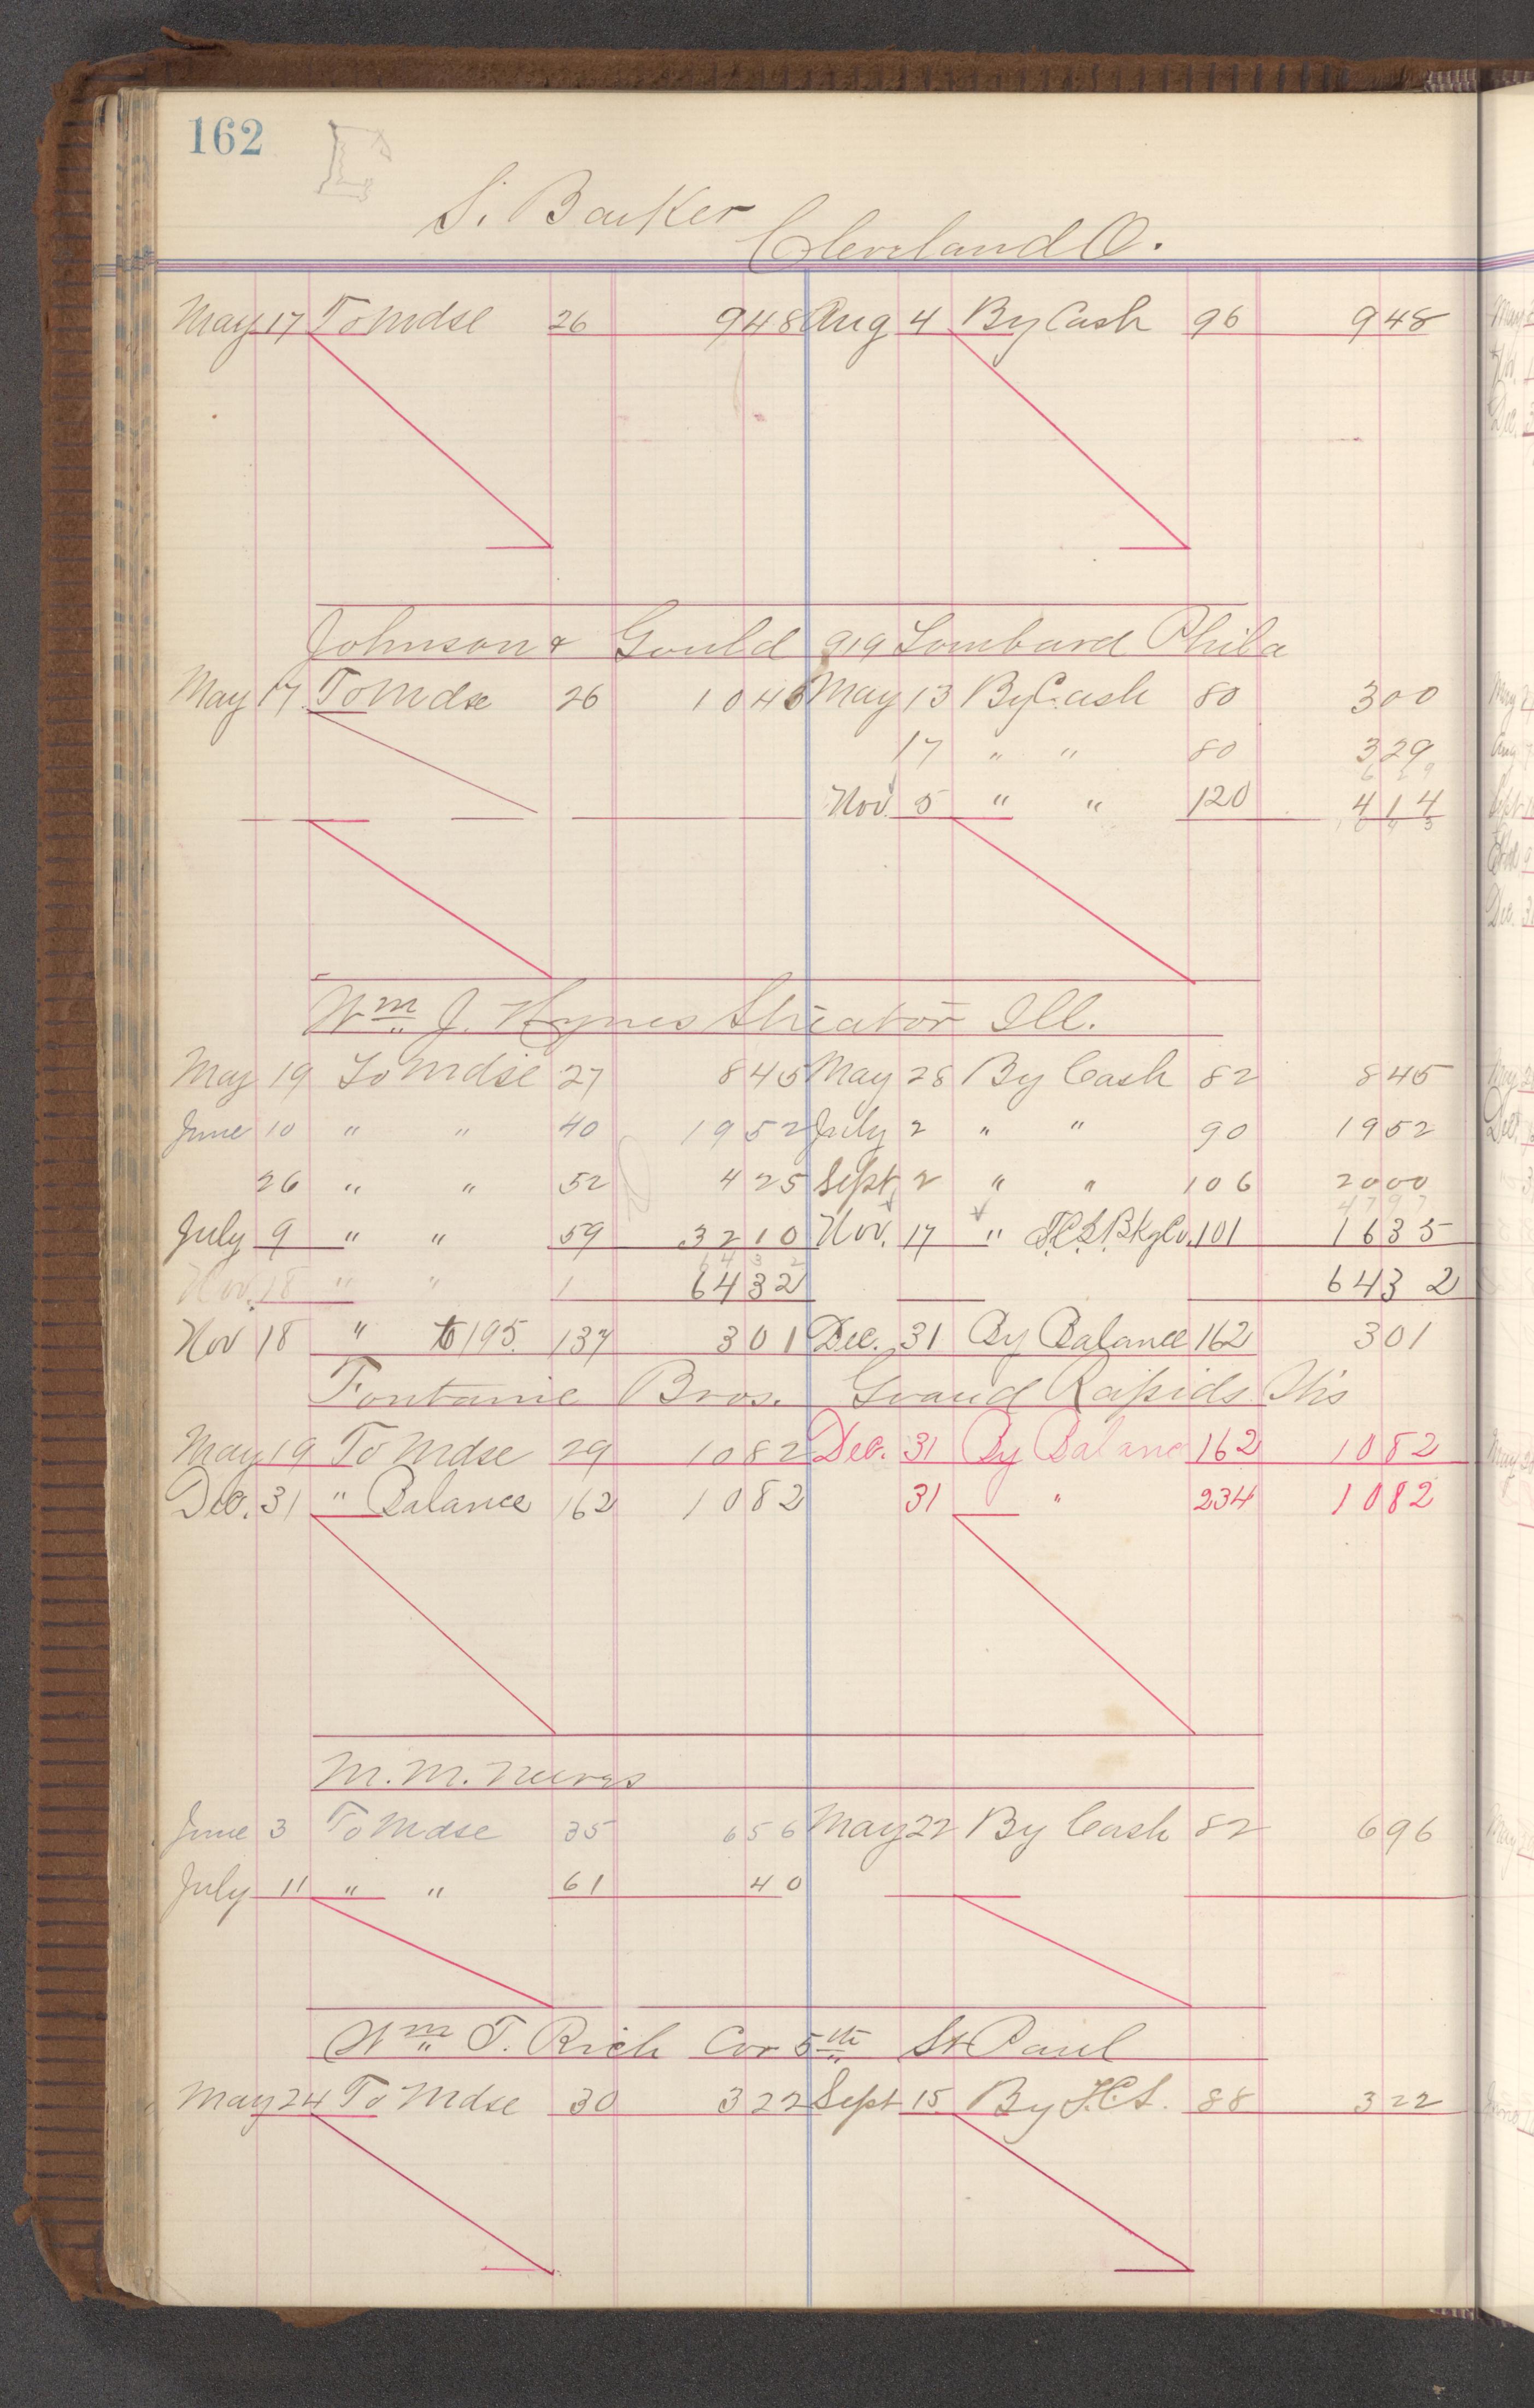 162
S. Barker
Cleveland O.
May 17 To Mdse 26 948 Aug 4 By Cash 96 948
Johnson & Gould 919 Lombard Phila
May 17 To Mdse 26 1043 May 13 By Cash 80 300
17 " " 80 329
629
Nov. 5 " " 120 414
1043
Wm J. Hynes Streator Ill.
May 19 To Mdse 27 845 May 28 By Cash 82 845
June 10 " " 40 1952 July 2 " " 90 1952
26 " " 52 425 Sept 2 " " 106 2000
4797
July 9 " " 59 3210 Nov. 17 " F.C.S. Bkg Co. 101 1635
6432
Nov. 18 " " 1 6432 6432
Nov 18 " to 195. 137 301 Dec. 31 By Balance 162 301
Fontanie Bros. Grand Rapids Wis
May 19 To Mdse 29 1082 Dec. 31 By Balance 162 1082
Dec. 31 " Balance 162 1082 31 " 234 1082
M. M.
June 3 To Mdse 35 656 May 22 By Cash 82 696
July 11 " " 61 40
Wm T. Rich Cor 5th St Paul
May 24 To Mdse 30 322 Sept 15 By F.C.S. 88 322